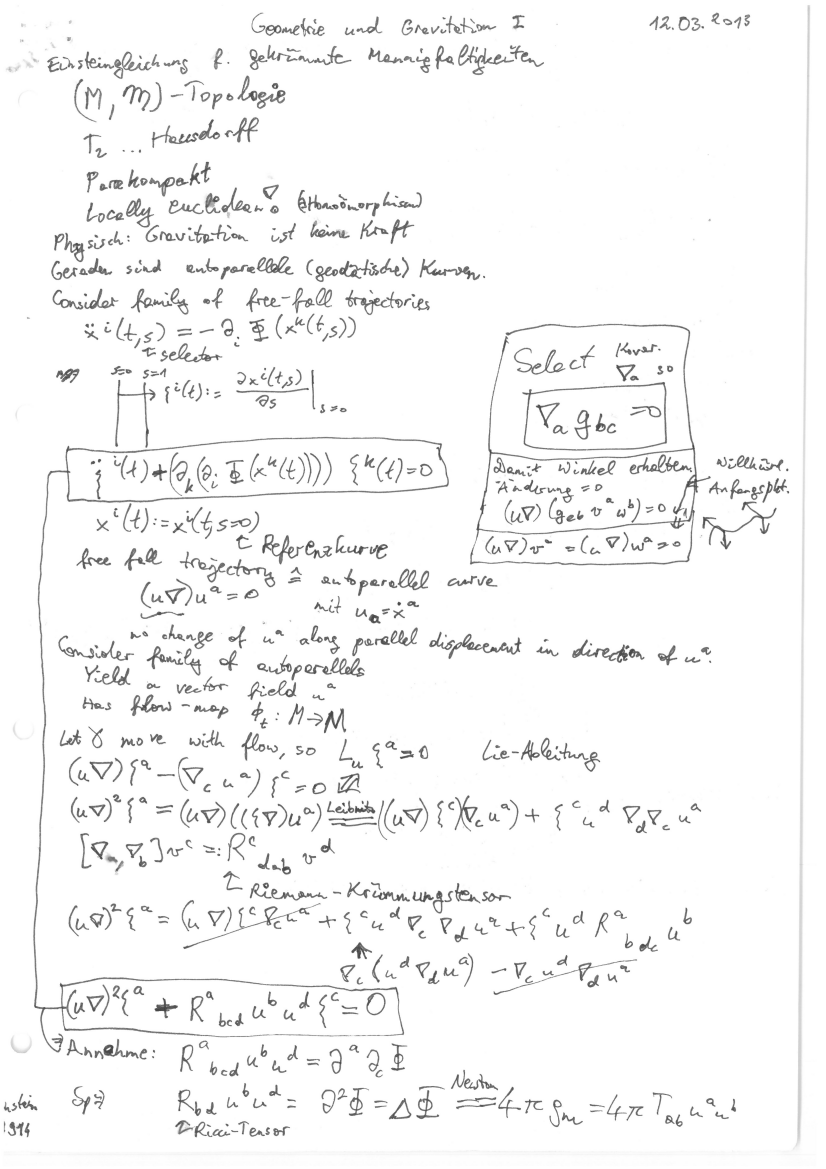 Geometrie und Gravitation I 12.03.2013
Einsteingleichung f. gekrümmte Mannigfaltigkeiten
(M, 𝔐) - Topologie
T₂ ... Hausdorff
Parakompakt
Locally euclidean ∇ (Homöomorphismen)
Physisch: Gravitation ist keine Kraft
Geraden sind autoparallele (geodätische) Kurven.
Consider family of free-fall trajectories
ẍ^i(t,s) = -∂_i Φ(x^k(t,s))
↑ selector
s=0 s=1
→ ξ^i(t) := ∂x^i(t,s)/∂s |_{s=0}
ξ̈^i(t) + (∂_k(∂_i Φ(x^k(t)))) ξ^k(t) = 0
x^i(t) := x^i(t,s=0)
↑ Referenzkurve
Select Kovar. ∇_a so
∇_a g_bc = 0
Damit Winkel erhalten.
Änderung = 0
(u∇)(g_ab v^a w^b) = 0
(u∇)v^a = (u∇)w^a = 0
Willkürl.
Anfangspkt.
free fall trajectory ≙ autoparallel curve
(u∇)u^a = 0 mit u_a = ẋ^a
no change of u^a along parallel displacement in direction of u^a.
Consider family of autoparallels
Yield a vector field u^a
Has flow-map ϕ_t : M → M
Let γ move with flow, so L_u ξ^a = 0 Lie-Ableitung
(u∇)ξ^a - (∇_c u^a) ξ^c = 0
(u∇)² ξ^a = (u∇)((ξ∇)u^a) =Leibnitz= ((u∇)ξ^c)(∇_c u^a) + ξ^c u^d ∇_d ∇_c u^a
[∇_a, ∇_b] v^c =: R^c_{dab} v^d
↑ Riemann-Krümmungstensor
(u∇)² ξ^a = (u∇)ξ^c ∇_c u^a + ξ^c u^d ∇_c ∇_d u^a + ξ^c u^d R^a_{bdc} u^b
↑
∇_c (u^d ∇_d u^a) - ∇_c u^d ∇_d u^a
(u∇)² ξ^a + R^a_{bcd} u^b u^d ξ^c = 0
Annahme: R^a_{bcd} u^b u^d = ∂^a ∂_c Φ
Sp ⇒ R_{bd} u^b u^d = ∂²Φ = ΔΦ =Newton= 4π ρ_m = 4π T_{ab} u^a u^b
↑ Ricci-Tensor
nstein
1914